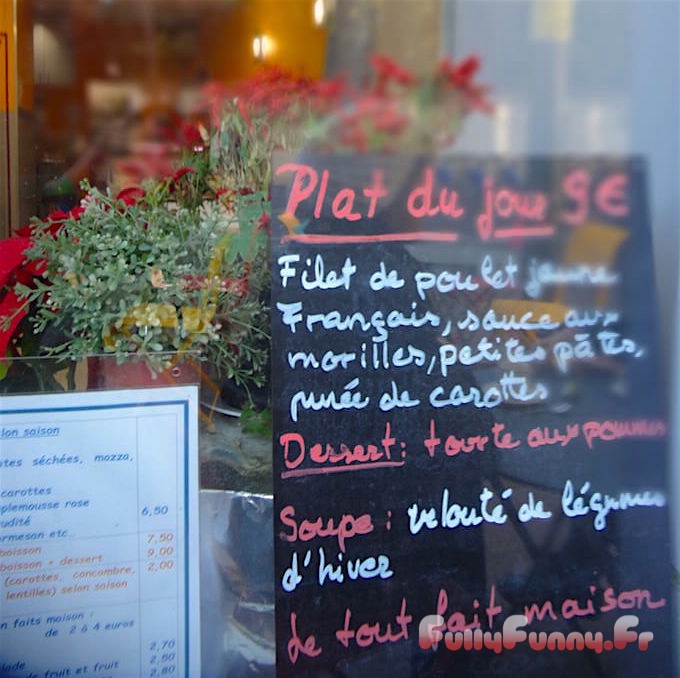 Plat du jour 9€
Filet de poulet jaune
Français, sauce aux
morilles, petites pâtes,
purée de carottes
Dessert: tourte aux pommes
Soupe: velouté de légumes
d'hiver
le tout fait maison
FullyFunny.Fr
lon saison
tes séchées, mozza,
carottes
plemousse rose
udité
6,50
rmesan etc..
boisson 7,50
boisson + dessert 9,00
(carottes, concombre, 2,00
lentilles) selon saison
n faits maison :
de 2 à 4 euros
2,70
lade 2,50
de fruit et fruit 2,80